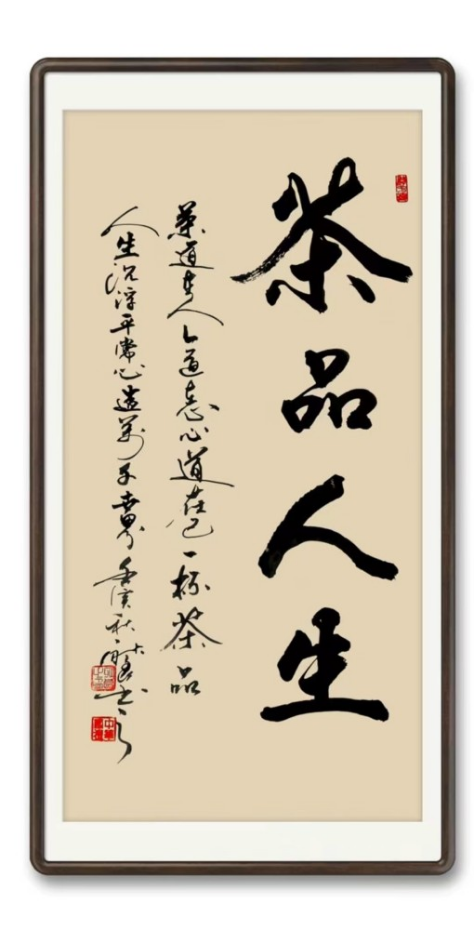 茶品人生
茶道在人人道志心道在己一杯茶品
人生沉浮平常心造万千世界